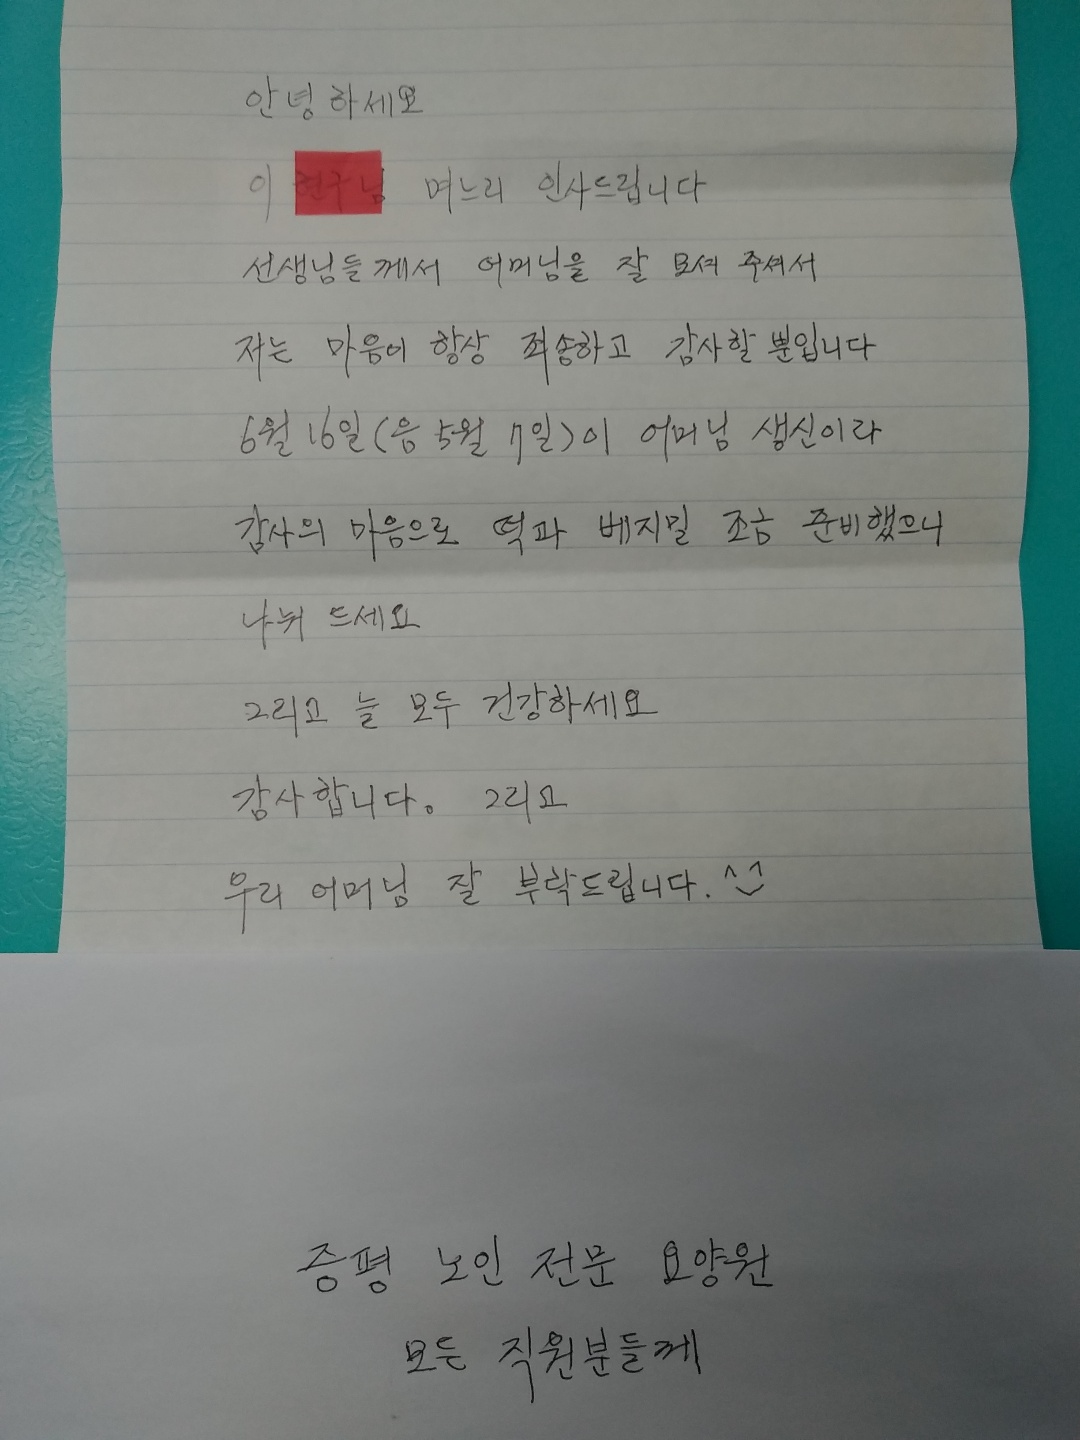 안녕하세요
이 며느리 인사드립니다
선생님들께서 어머님을 잘 모셔 주셔서
저는 마음이 항상 죄송하고 감사할 뿐입니다
6월 16일(음 5월 7일)이 어머님 생신이라
감사의 마음으로 떡과 베지밀 조금 준비했으니
나눠 드세요
그리고 늘 모두 건강하세요
감사합니다. 그리고
우리 어머님 잘 부탁드립니다. ^^
증평 노인 전문 요양원
모든 직원분들께